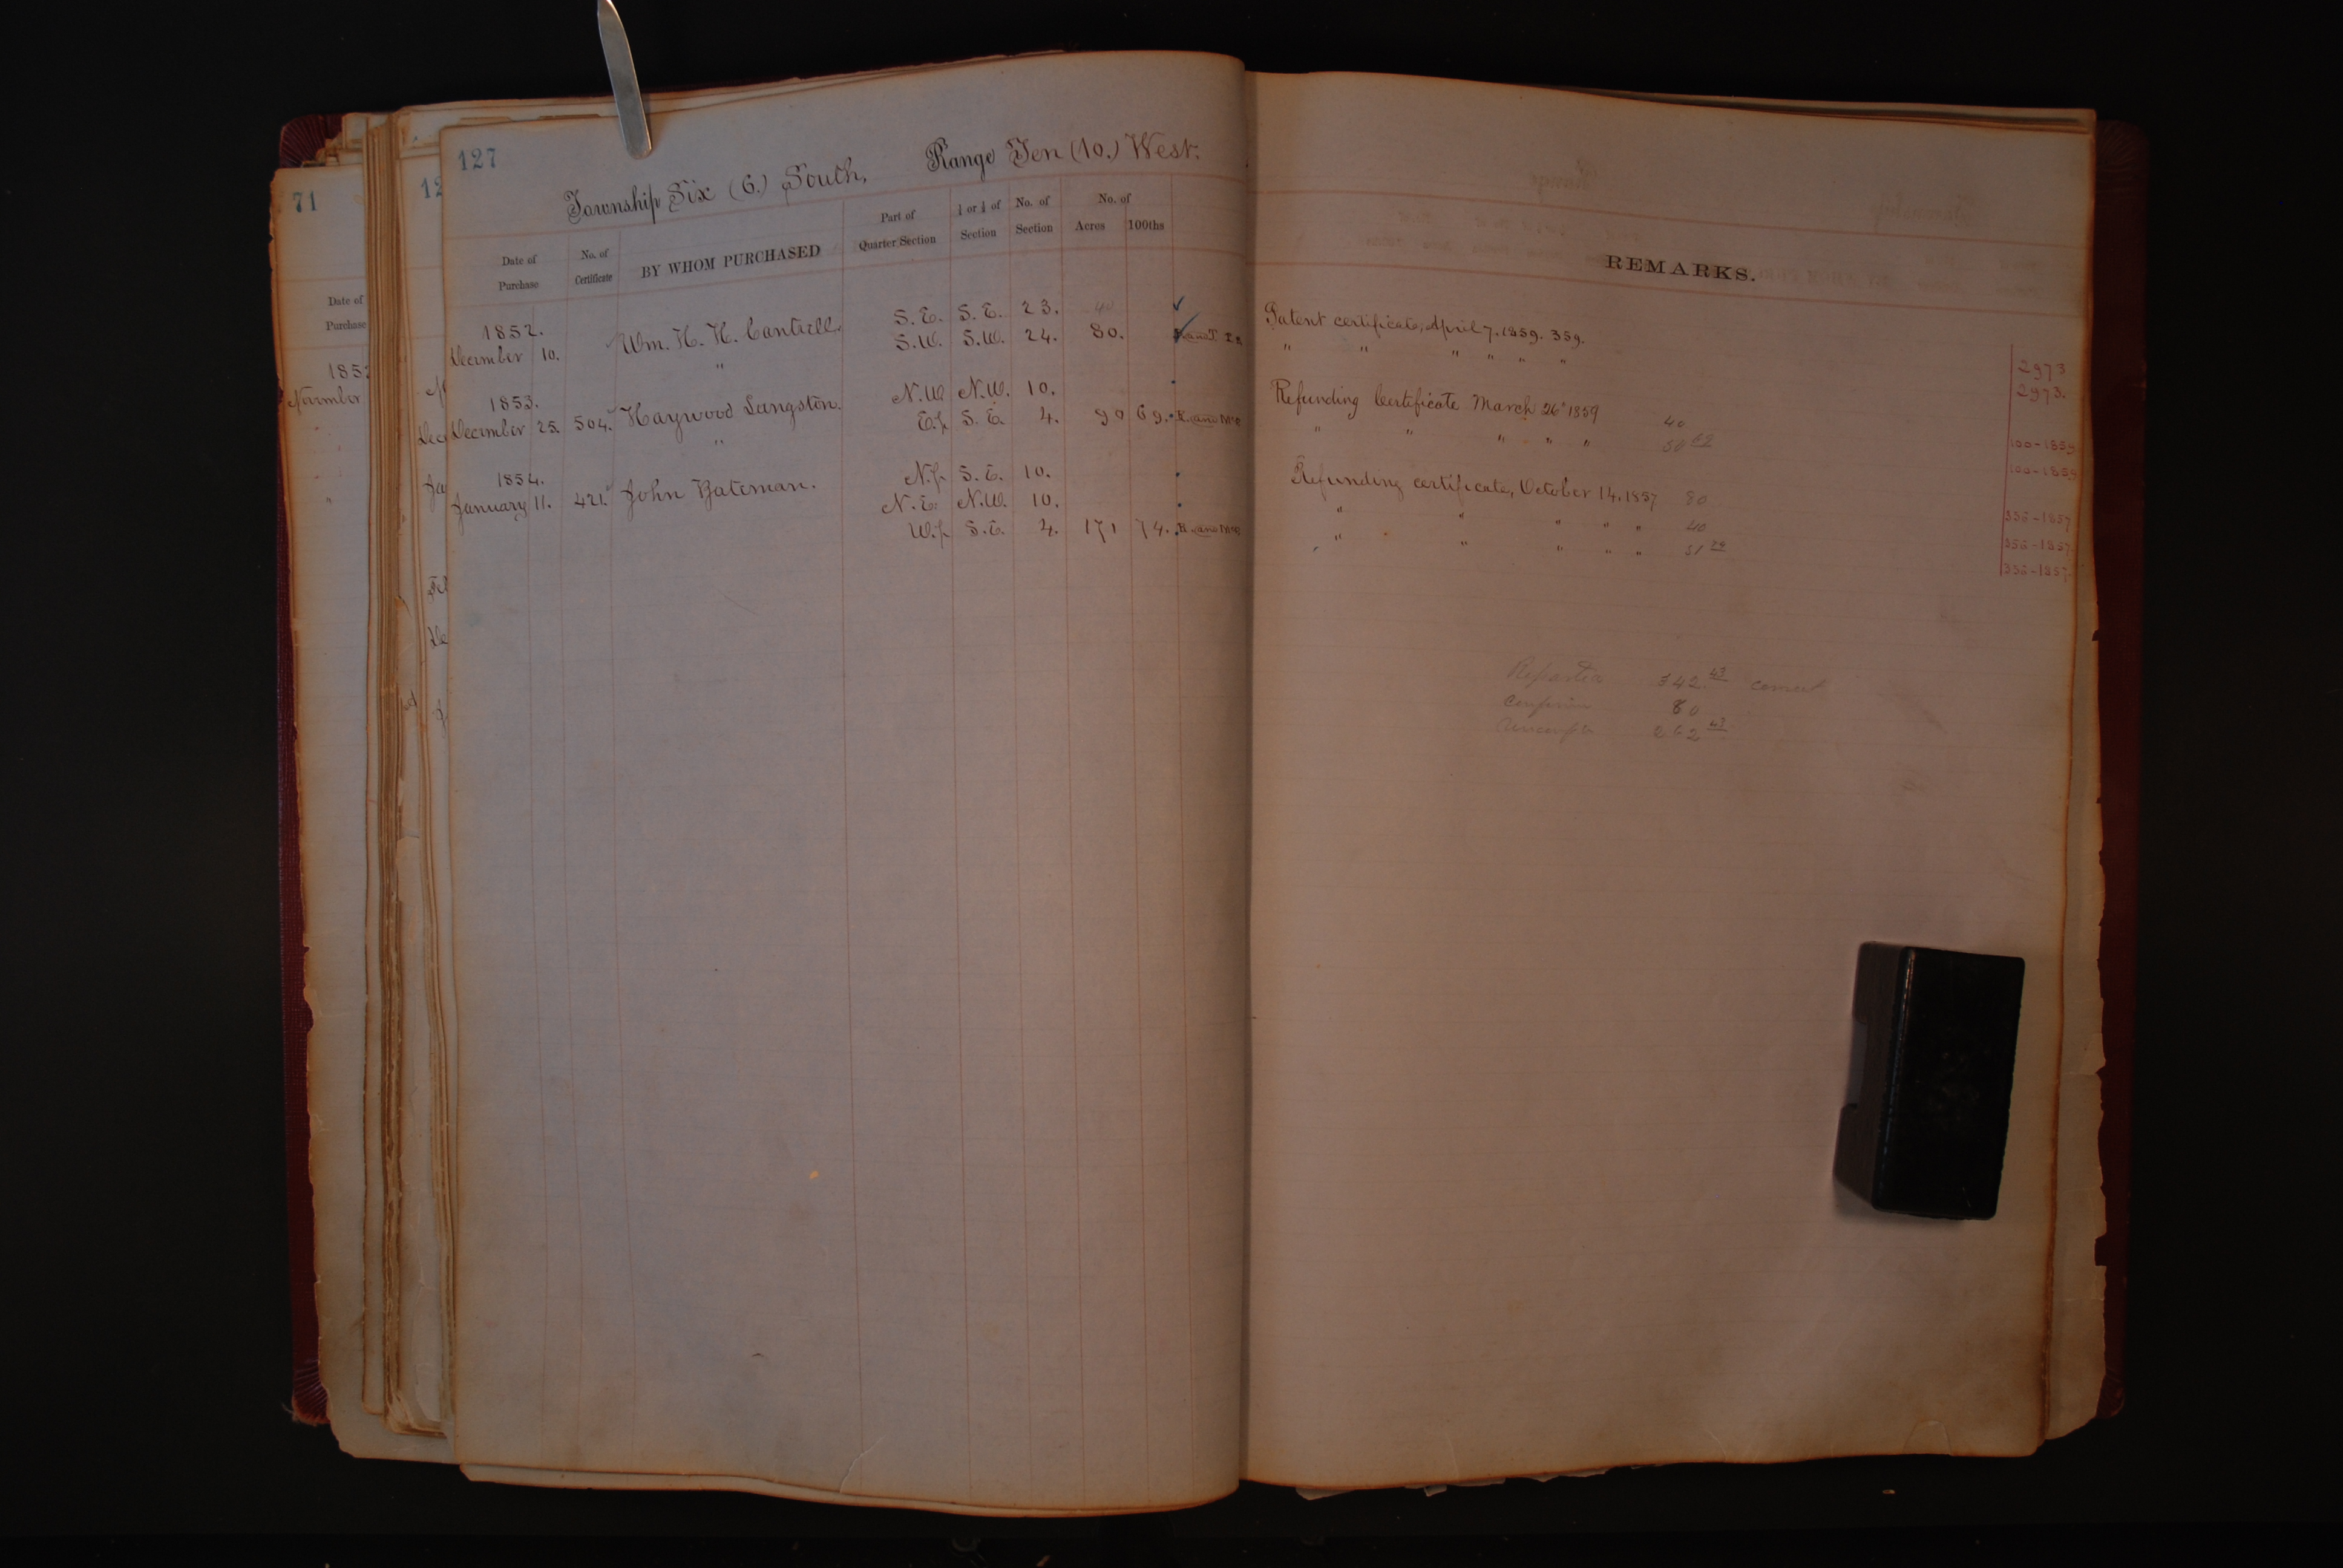 127
Township Six (6.) South, Range Ten (10.) West.
Date of Purchase No. of Certificate BY WHOM PURCHASED Part of Quarter Section ¼ or ½ of Section No. of Section No. of Acres 100ths
REMARKS.
1852.
December 10. Wm. H. H. Cantrell. S.E. S.E. 23. 40 Patent certificate, April 7. 1859. 359. 2973
" S.W. S.W. 24. 80. " " " " " " 2973.
1853.
December 25. 504. Haywood Langston. N.W. N.W. 10. Refunding Certificate March 26" 1859 40 100-1859
" E.½ S.E. 4. 90 69. R. and " " " " " 50 69 100-1859
1854.
January 11. 421. John Bateman. N.½ S.E. 10. Refunding certificate, October 14. 1857 80 336-1857
N.E. N.W. 10. " " " " " 40 336-1857
W.½ S.E. 4. 171 74. R. and " " " " " 51 336-1857
Reported 342 43 correct
80
262 43
71
Date of
Purchase
185
November
"